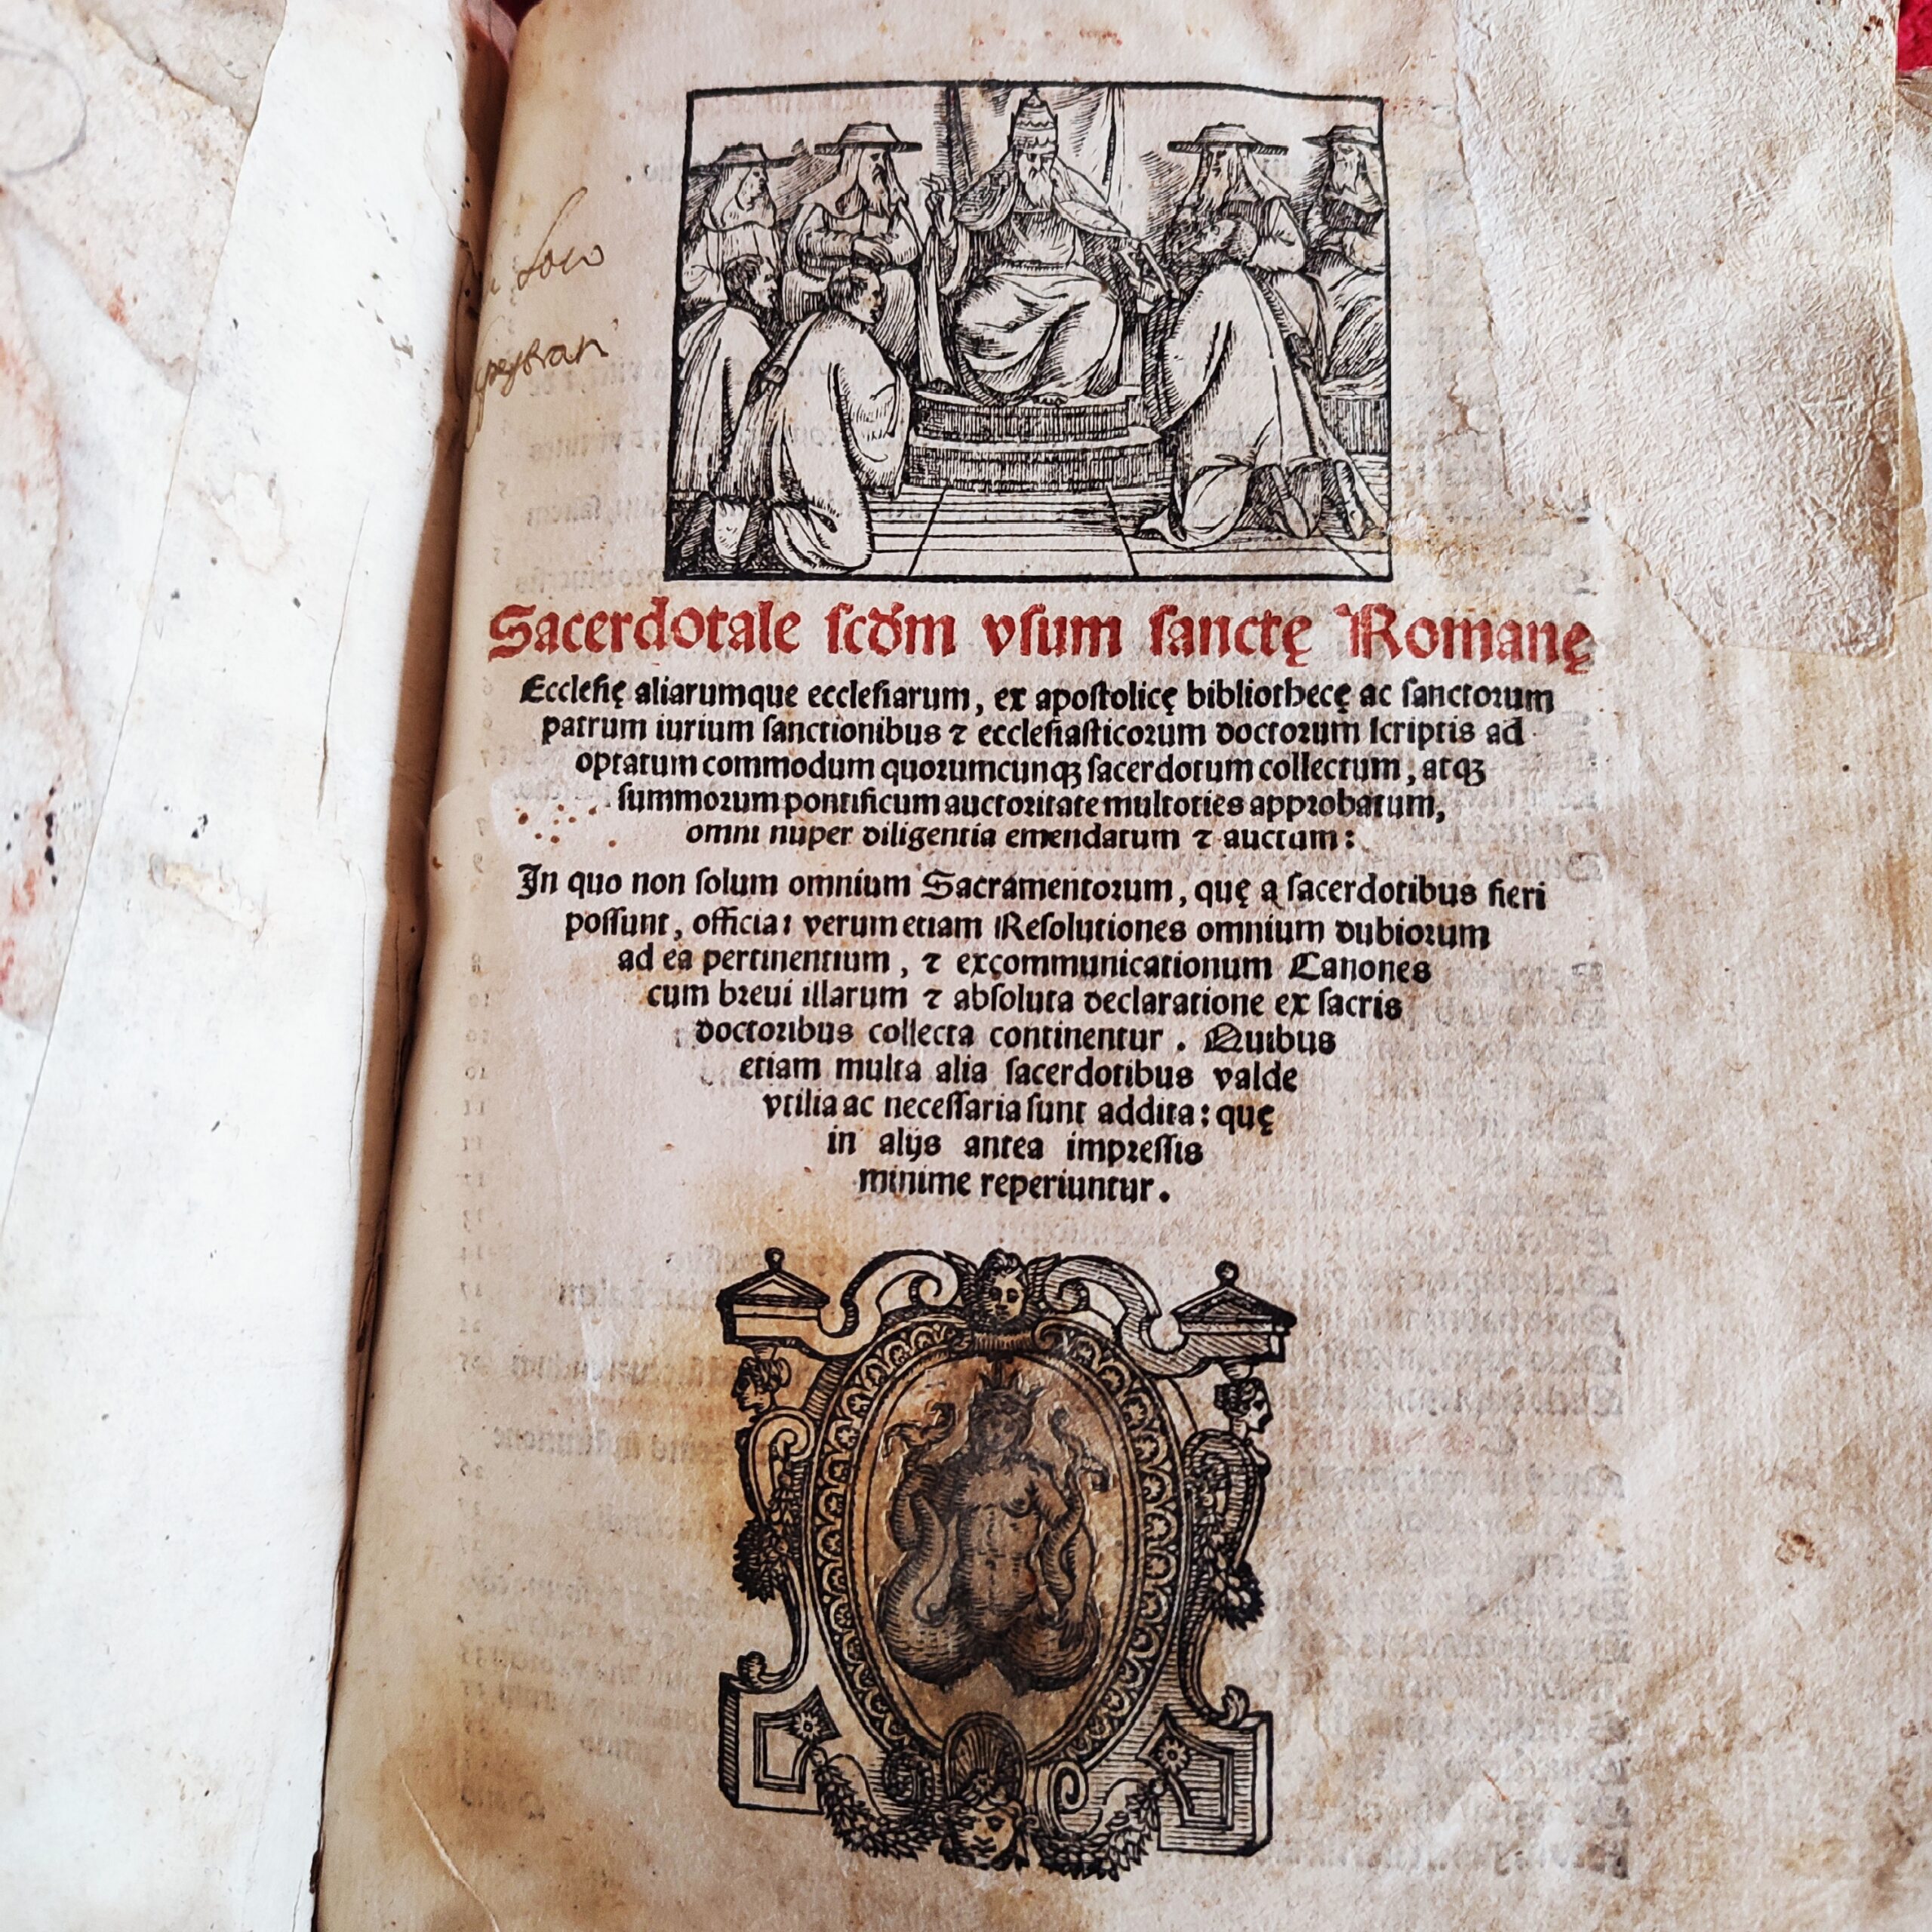 Sacerdotale scd̄m vsum sanctę Romanę
Ecclesię aliarumque ecclesiarum, ex apostolicę bibliothecę ac sanctorum
patrum iurium sanctionibus ⁊ ecclesiasticorum doctorum scriptis ad
optatum commodum quorumcunqꝫ sacerdotum collectum, atqꝫ
summorum pontificum auctoritate multoties approbatum,
omni nuper diligentia emendatum ⁊ auctum:
In quo non solum omnium Sacramentorum, quę a sacerdotibus fieri
possunt, officia: verum etiam Resolutiones omnium dubiorum
ad ea pertinentium, ⁊ excommunicationum Canones
cum breui illarum ⁊ absoluta declaratione ex sacris
doctoribus collecta continentur. Quibus
etiam multa alia sacerdotibus valde
vtilia ac necessaria sunt addita: quę
in alijs antea impressis
minime reperiuntur.